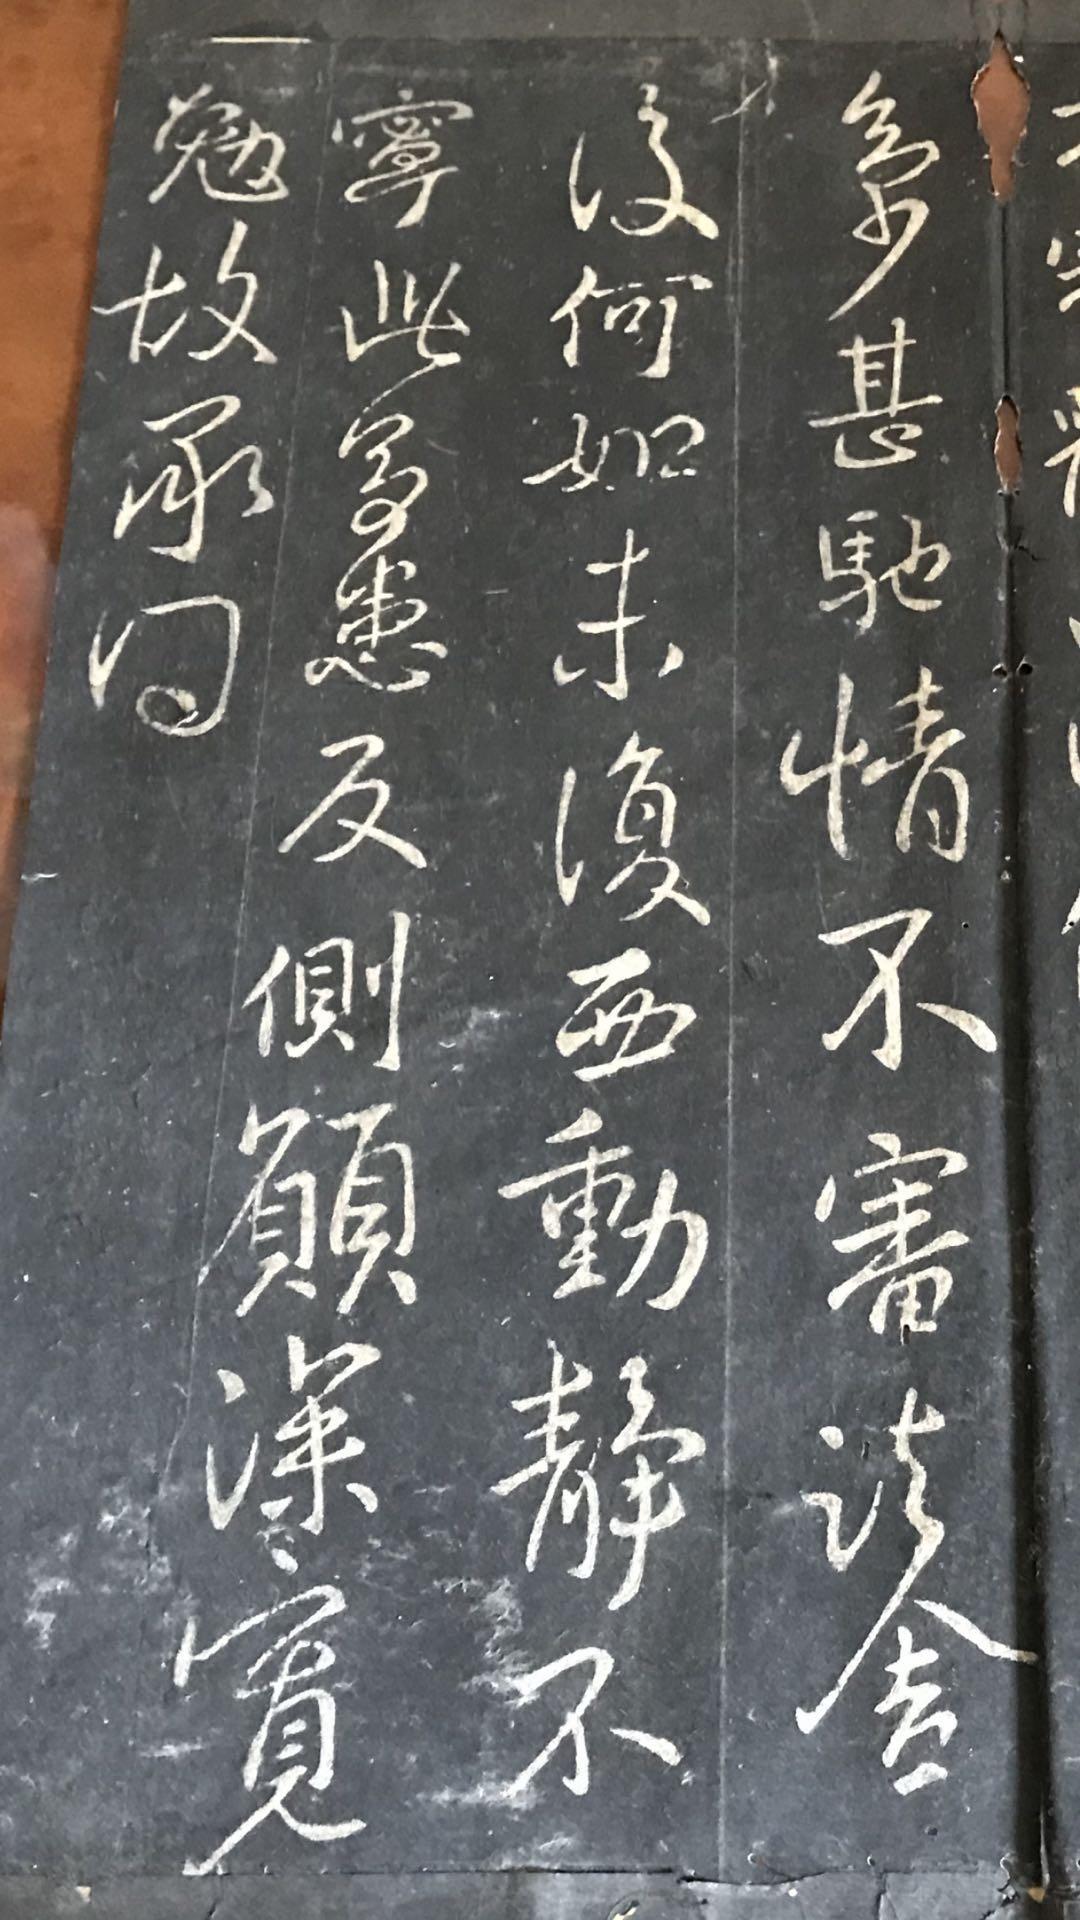 甚馳情不審談舍
後何如未復西動靜不
寧此患反側願深〻寬
勉故承問